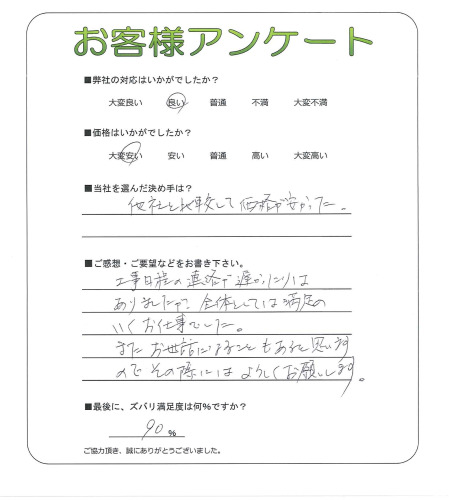 お客様アンケート
■弊社の対応はいかがでしたか?
大変良い 良い 普通 不満 大変不満
■価格はいかがでしたか?
大変安い 安い 普通 高い 大変高い
■当社を選んだ決め手は?
他社と比較して価格が安かった。
■ご感想・ご要望などをお書き下さい。
工事日程の連絡が遅かったりは
ありましたが、全体としては満足の
いくお仕事でした。
またお世話になることもあると思います
のでその際にはよろしくお願いします。
■最後に、ズバリ満足度は何%ですか?
90 %
ご協力頂き、誠にありがとうございました。